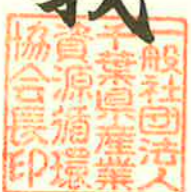 一般社団法人
千葉県産業
資源循環
協会長印